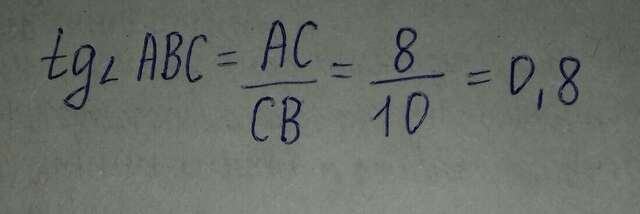 tg∠ABC = AC/CB = 8/10 = 0,8